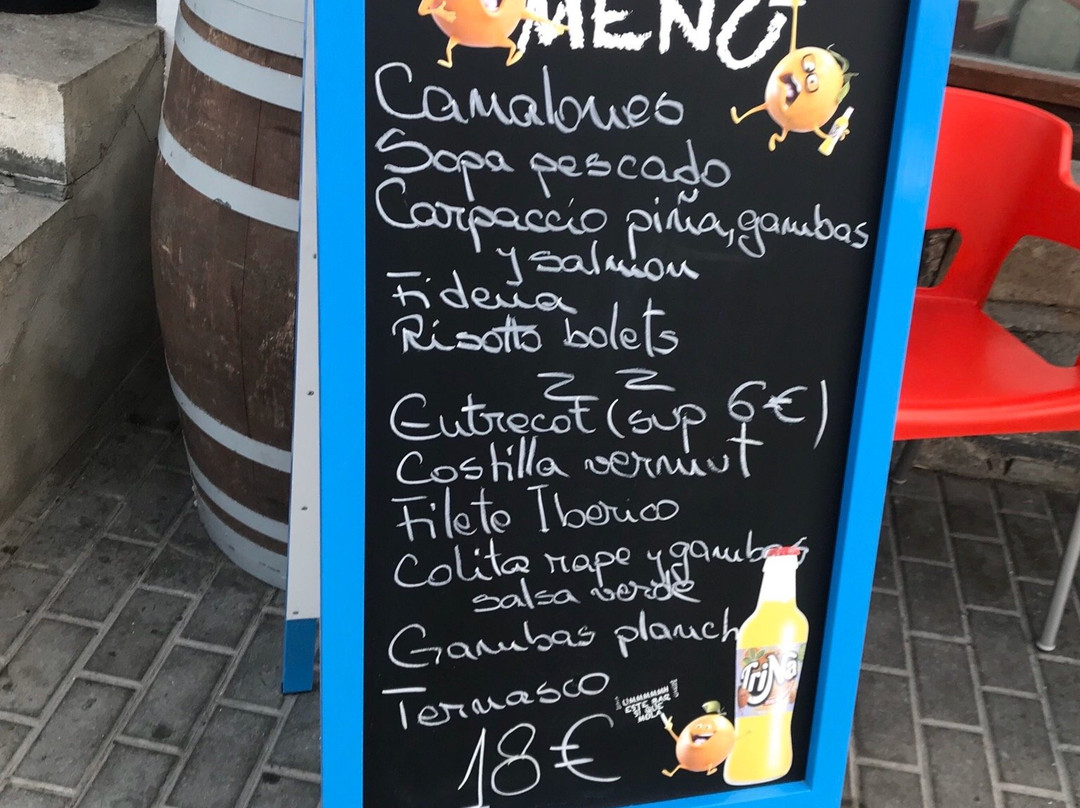 MENÚ
Canalones
Sopa pescado
Carpaccio piña, gambas
y salmon
Fideua
Risotto bolets
Entrecot (sup 6€)
Costilla vermut
Filete Iberico
Colita rape y gambas
salsa verde
Gambas planch
Ternasco
18€
UMMMMMM
ESTE BAR
SÍ QUE
MOLA
TriNa